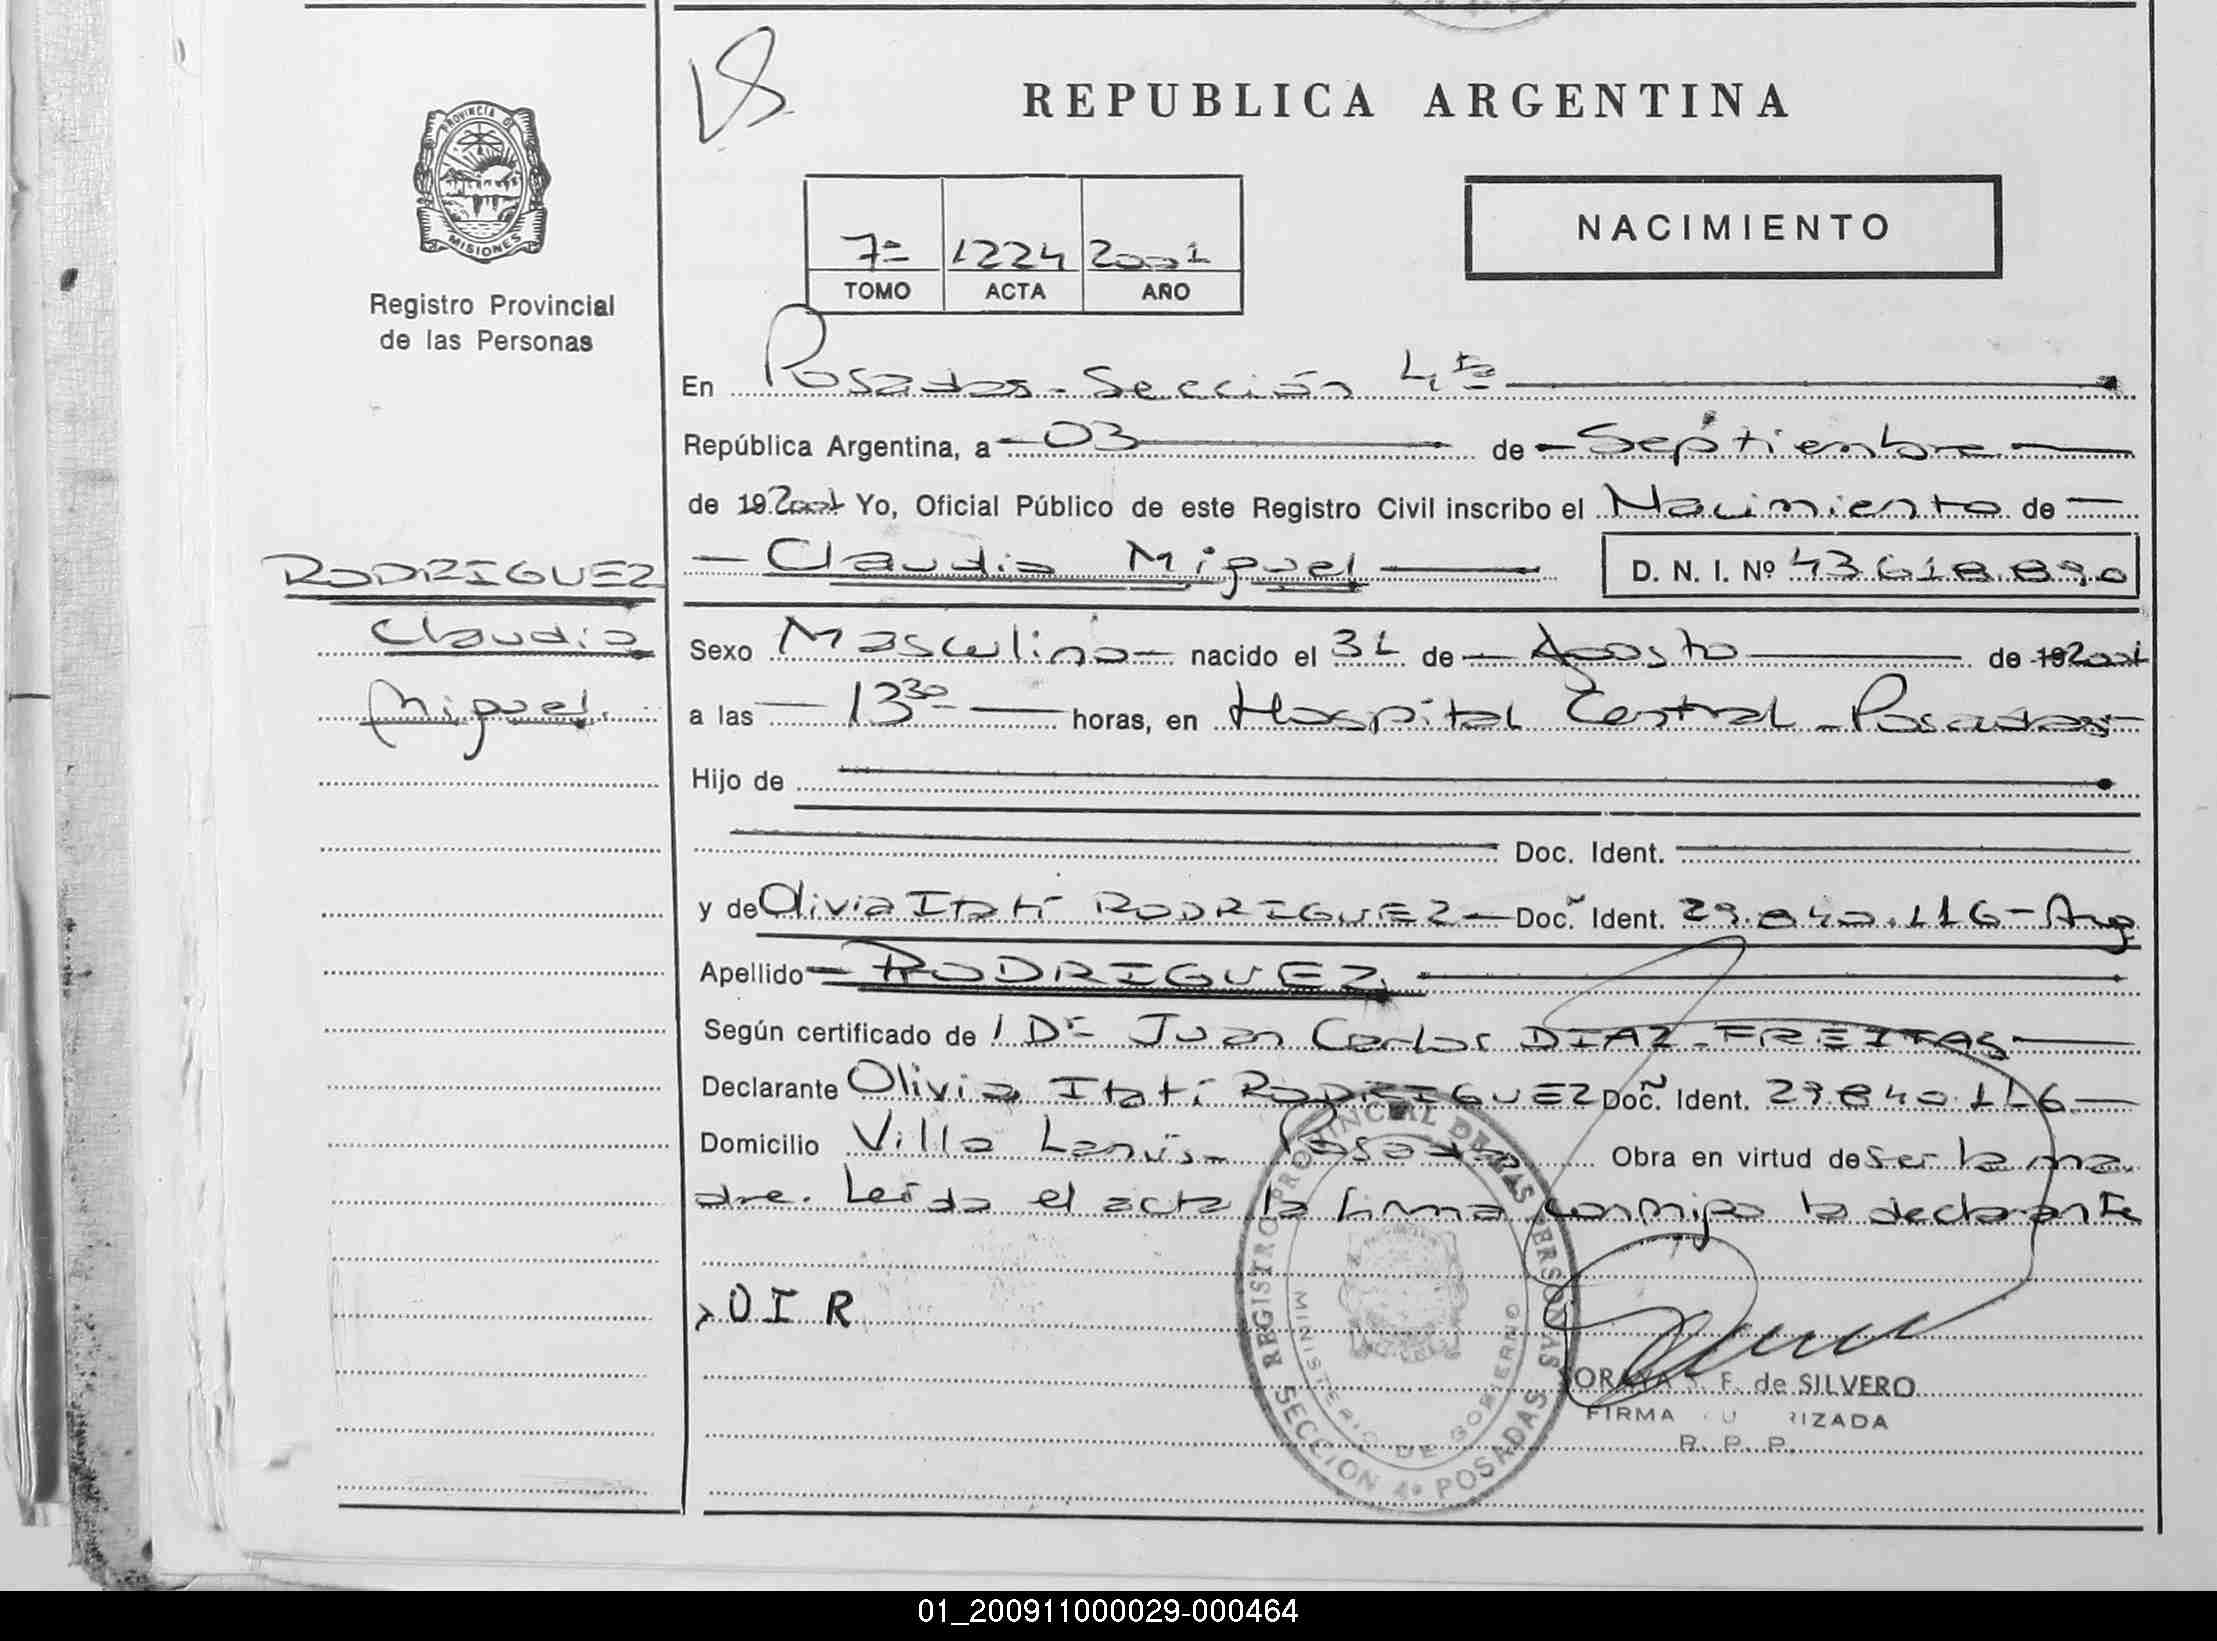 REPUBLICA ARGENTINA
PROVINCIA DE
MISIONES
Registro Provincial
de las Personas
NACIMIENTO
7º 1224 2001
TOMO ACTA AÑO
En Posadas - Sección 4ta
República Argentina, a - 03 de - Septiembre
de 19 2001 Yo, Oficial Público de este Registro Civil inscribo el Nacimiento de -
- Claudio Miguel - D. N. I. Nº 43.618.890
RODRIGUEZ
Claudio
Miguel.
Sexo Masculino - nacido el 31 de - Agosto de 19 2001
a las - 13 30 - horas, en Hospital Central - Posadas -
Hijo de
Doc. Ident.
y de Olivia Itatí RODRIGUEZ - Doc. Ident. 29.840.116 - Arg
Apellido - RODRIGUEZ.
Según certificado de Dr Juan Carlos DIAZ - FREITAS
Declarante Olivia Itatí RODRIGUEZ Doc. Ident. 29.840.116 -
Domicilio Villa Lanús - Posadas Obra en virtud de ser la ma
dre. Leída el acta la firma conmigo la declarante
O I R
REGISTRO PROVINCIAL DE LAS PERSONAS
MINISTERIO DE GOBIERNO
SECCION 4ª POSADAS
SORAYA F. de SILVERO
FIRMA AUTORIZADA
R. P. P.
01_200911000029-000464